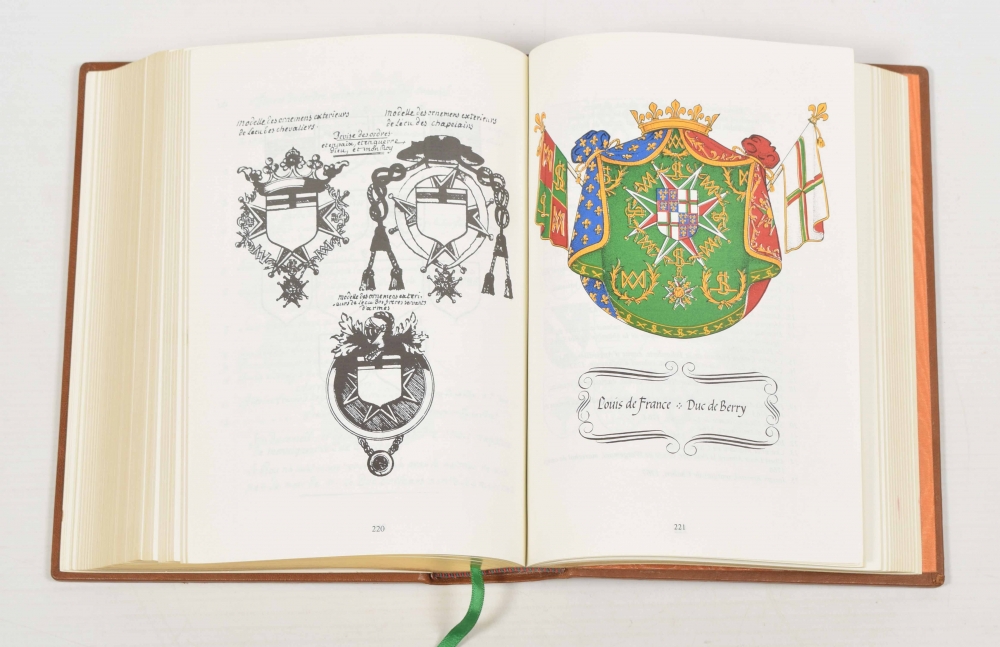 modelle des ornemens exterieurs
de lecu des chevaliers
modelle des ornemens exterieurs
de lecu des chapelains
Croise des ordres
modelle des ornemens exteri-
eurs de lecu des freres servants
d'armes
220
Louis de France Duc de Berry
221